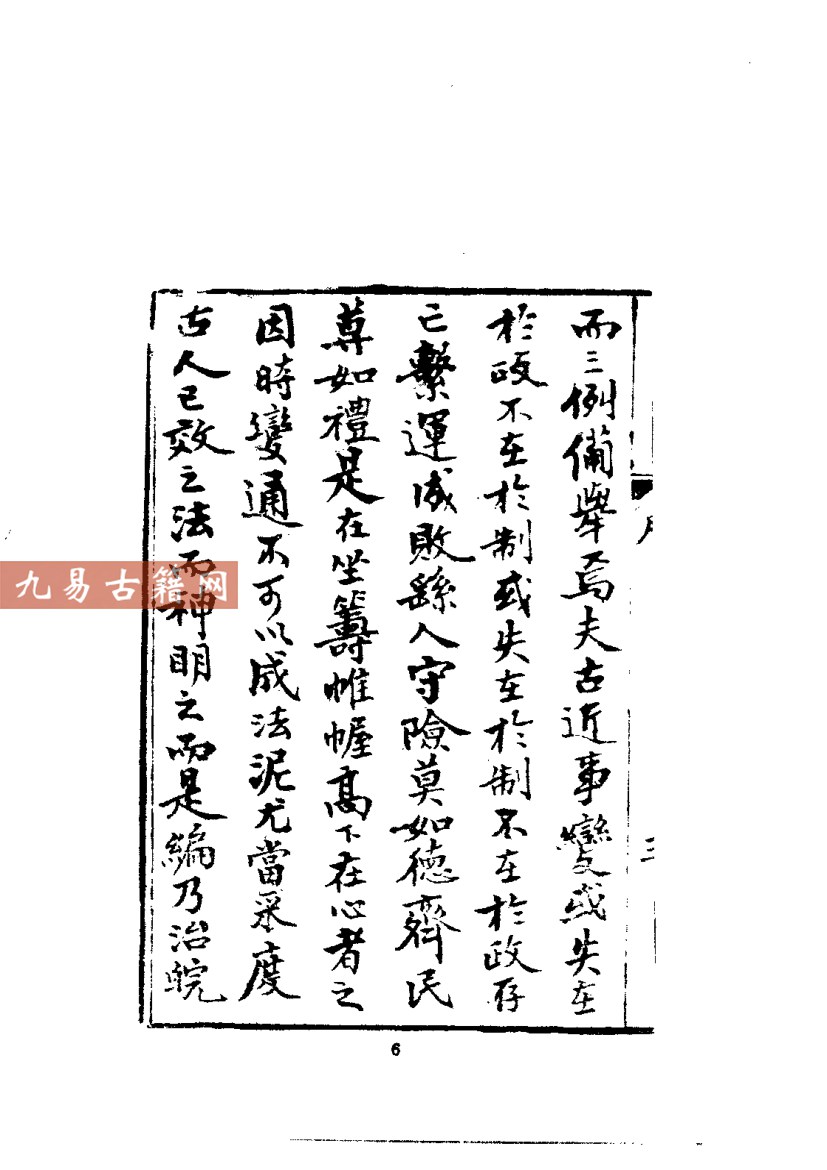 而三例備舉焉夫古近事變或失在
於政不在於制或失在於制不在於政存
亡繫運成敗繇人守險莫如德齊民
莫如禮是在坐籌帷幄高下在心者之
因時變通不可以成法泥尤當采度
古人已效之法而神明之而是編乃治皖
序
三
九易古籍网
6